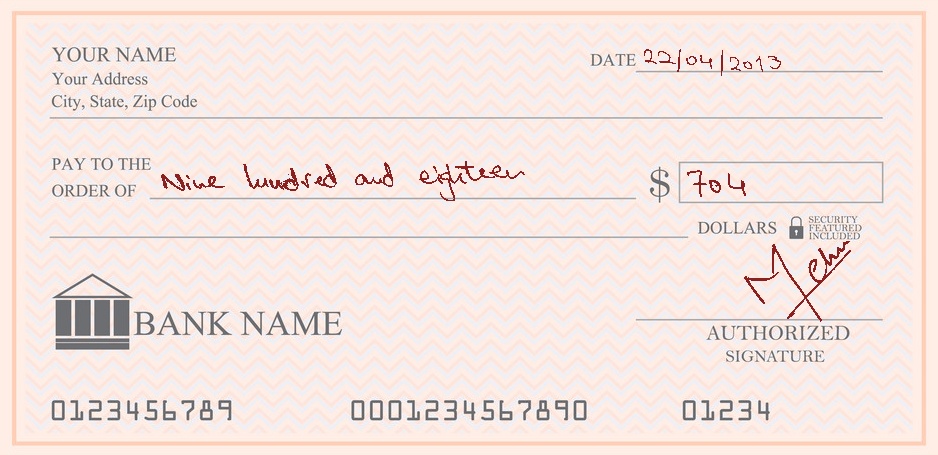 YOUR NAME
Your Address
City, State, Zip Code
DATE 22/04/2013
PAY TO THE
ORDER OF Nine hundred and eighteen $ 704
DOLLARS SECURITY
FEATURED
INCLUDED
BANK NAME
AUTHORIZED
SIGNATURE
0123456789 0001234567890 01234